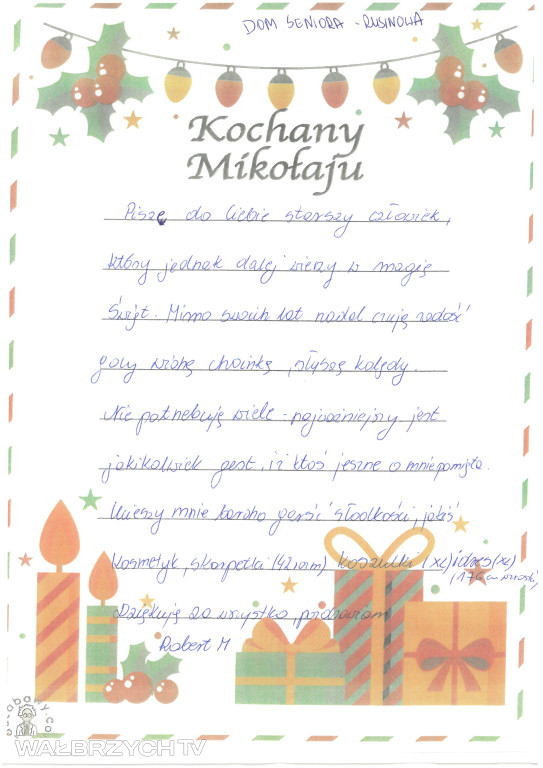 DOM SENIORA - RUSINOWA
Kochany
Mikołaju
Piszę do Ciebie starszy człowiek,
który jednak dalej wierzy w magię
Świąt. Mimo swoich lat nadal czuję radość
gdy widzę choinkę, słyszę kolędy.
Nie potrzebuję wiele - najważniejszy jest
jakikolwiek gest, iż ktoś jeszcze o mnie pamięta.
Ucieszy mnie bardzo garść słodkości, jakiś
kosmetyk, skarpetki (42 rozm) koszulki (XL) i dres (XL)
(176 cm wzrostu)
Dziękuję za wszystko pozdrawiam
Robert M
WAŁBRZYCH TV